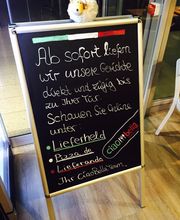 Ab sofort liefern
wir unsere Gerichte
direkt und zügig bis
zu Ihrer Tür
Schauen Sie Online
unter
• Lieferheld
• Pizza.de
• Lieferando
Ihr CiaoBella Team
ciaobella